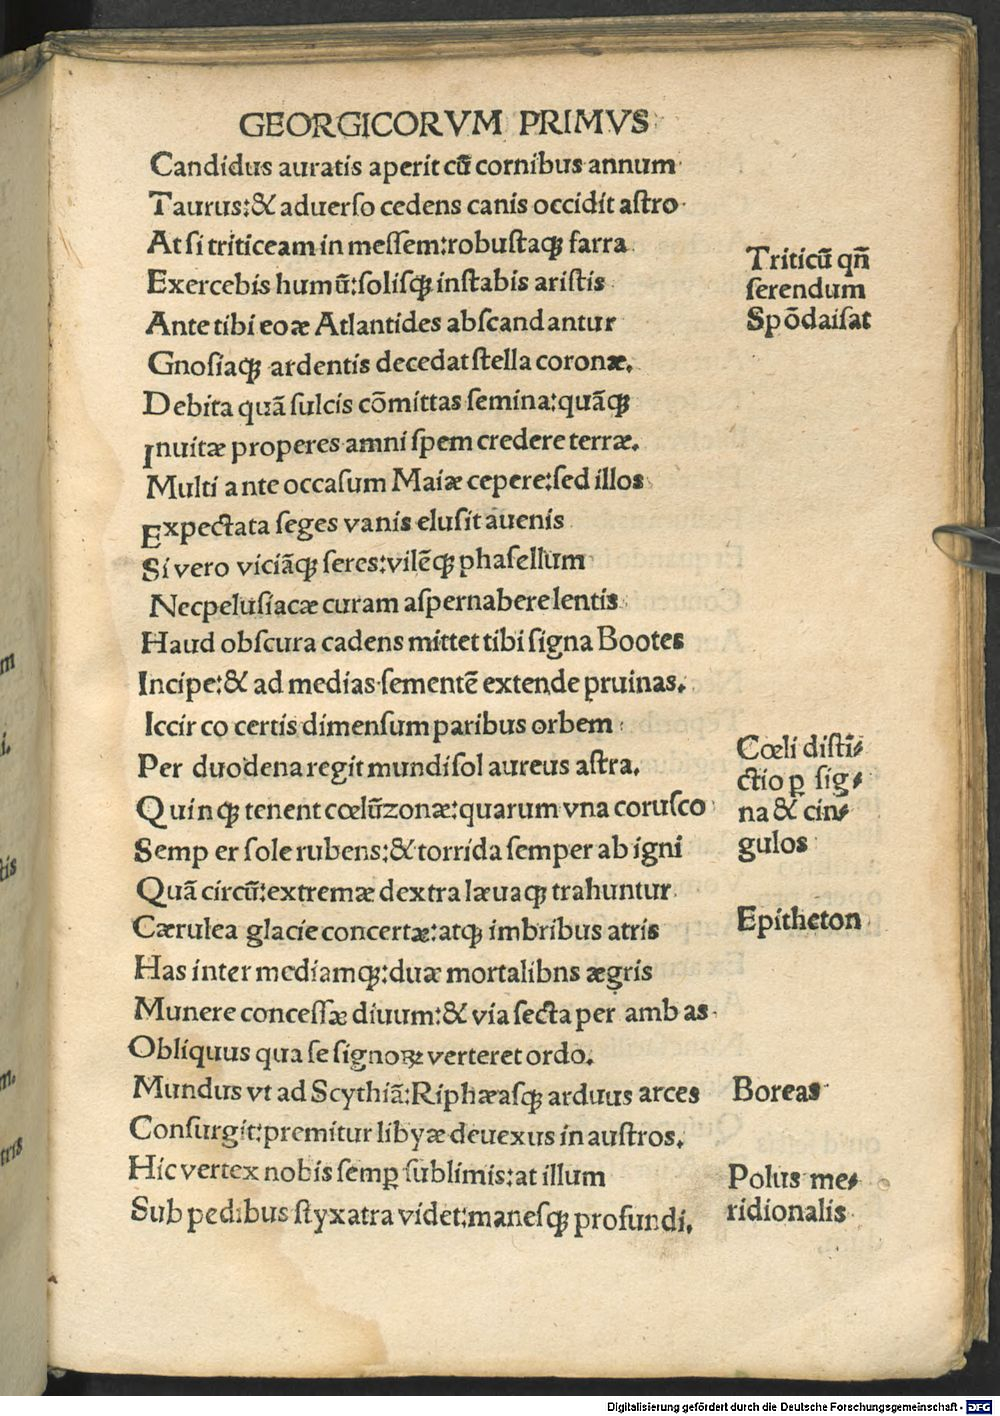 GEORGICORVM PRIMVS
Candidus auratis aperit cū cornibus annum
Taurus:& aduerſo cedens canis occidit aſtro
At ſi triticeam in meſſem:robuſtaqꝫ farra
Exercebis humū:ſoliſqꝫ inſtabis ariſtis
Ante tibi eoæ Atlantides abſcandantur
Gnoſiaqꝫ ardentis decedat ſtella coronæ.
Debita quā ſulcis cōmittas ſemina:quāqꝫ
Inuitæ properes amni ſpem credere terræ.
Multi ante occaſum Maiæ cepere:ſed illos
Expectata ſeges vanis eluſit auenis
Si vero viciāqꝫ ſeres:vilēqꝫ phaſellum
Necpeluſiacæ curam aſpernabere lentis
Haud obſcura cadens mittet tibi ſigna Bootes
Incipe:& ad medias ſementē extende pruinas.
Iccir co certis dimenſum paribus orbem
Per duodena regit mundi ſol aureus aſtra.
Quinqꝫ tenent cœlū zonæ:quarum vna coruſco
Semp er ſole rubens:& torrida ſemper ab igni
Quā circū:extremæ dextra læuaqꝫ trahuntur
Cærulea glacie concertæ:atqꝫ imbribus atris
Has inter mediamqꝫ:duæ mortalibns ægris
Munere conceſſæ diuum:& via ſecta per amb as
Obliquus qua ſe ſignoꝝ verteret ordo.
Mundus vt ad Scythiā:Riphæaſqꝫ arduus arces
Conſurgit:premitur libyæ deuexus in auſtros.
Hic vertex nobis ſemꝑ ſublimis:at illum
Sub pedibus ſtyx atra videt:maneſqꝫ profundi.
Triticū qñ
ſerendum
Spōdaiſat
Cœli diſti-
ctio ꝑ ſig-
na & cin-
gulos
Epitheton
Boreas
Polus me-
ridionalis
m
i.
tis
m.
tris
Digitalisierung gefördert durch die Deutsche Forschungsgemeinschaft - DFG